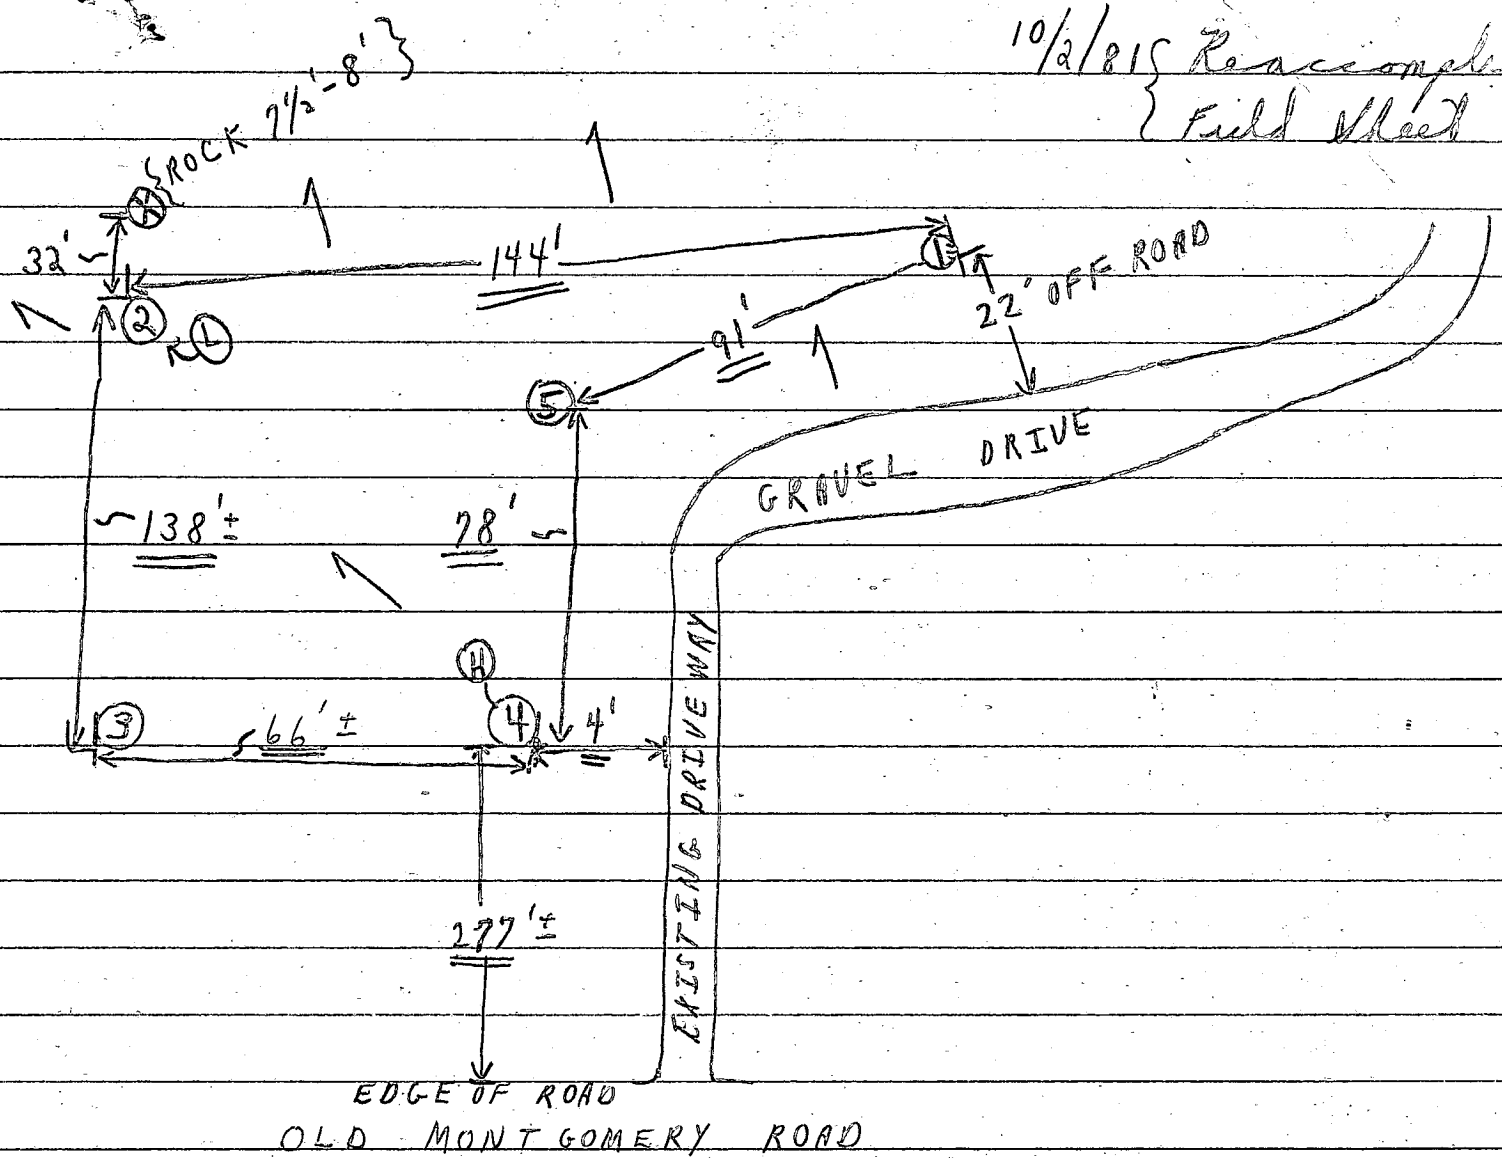 10/2/81 { Reaccompl
Field Sheet
{ ROCK 7½'-8' }
X
32'
144'
1
22' OFF ROAD
2
L
91'
5
GRAVEL DRIVE
138'±
78'
H
3
66'±
4
4'
EXISTING DRIVEWAY
277'±
EDGE OF ROAD
OLD MONTGOMERY ROAD